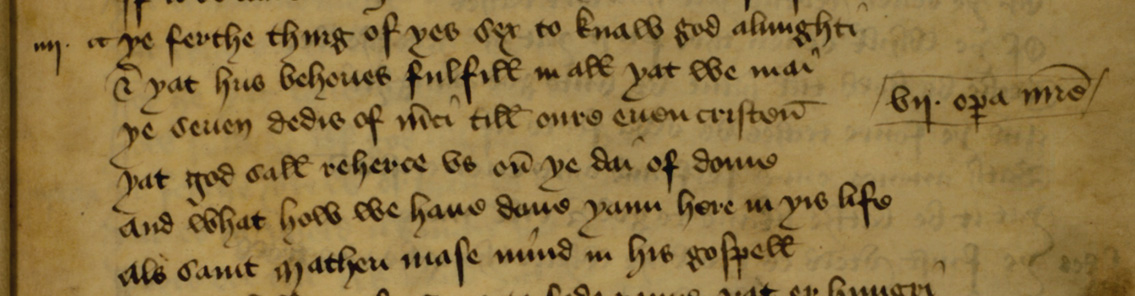 iiij. ye ferthe thing of yes sex to knaw god almighti
Es yat hus behoues fulfill in all yat we mai
ye seuen dedis of m̄ci till oure euen cristen̄
vij. oꝑa mīe
yat god sall reherce vs on̄ ye dai of dome
And what how we haue done yaim here in yis life
Als saint Matheu mase mind in his gospell
yat er hungri